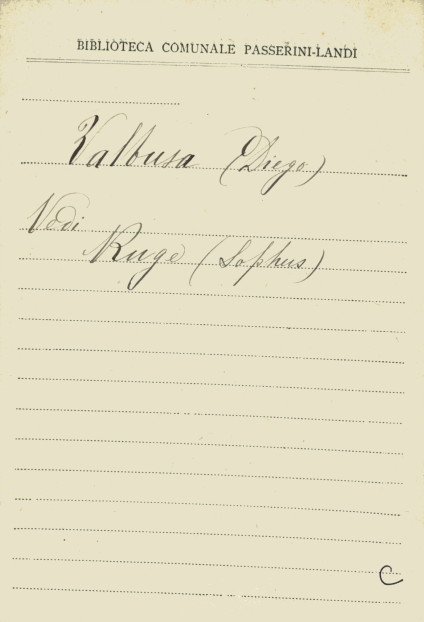 BIBLIOTECA COMUNALE PASSERINI-LANDI
Valbusa (Diego)
Vedi
Ruge (Sophus)
C